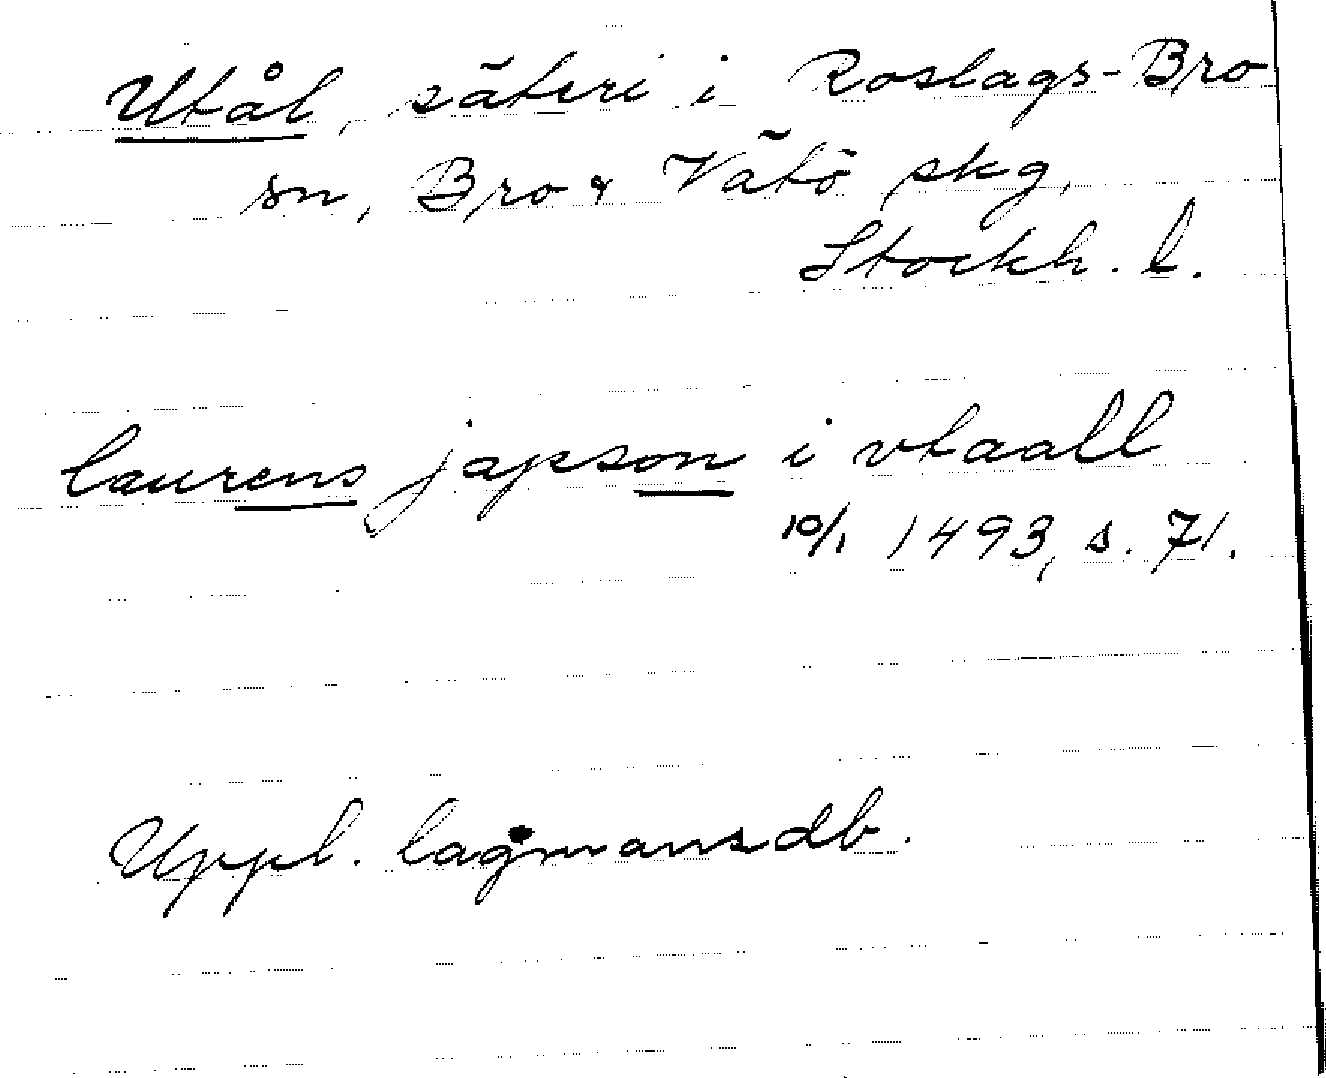 Utål, säteri i Roslags-Bro
sn, Bro & Vätö skg,
Stockh. l.
laurens japson i vtaall
10/1 1493, s. 71.
Uppl. lagmansdb.